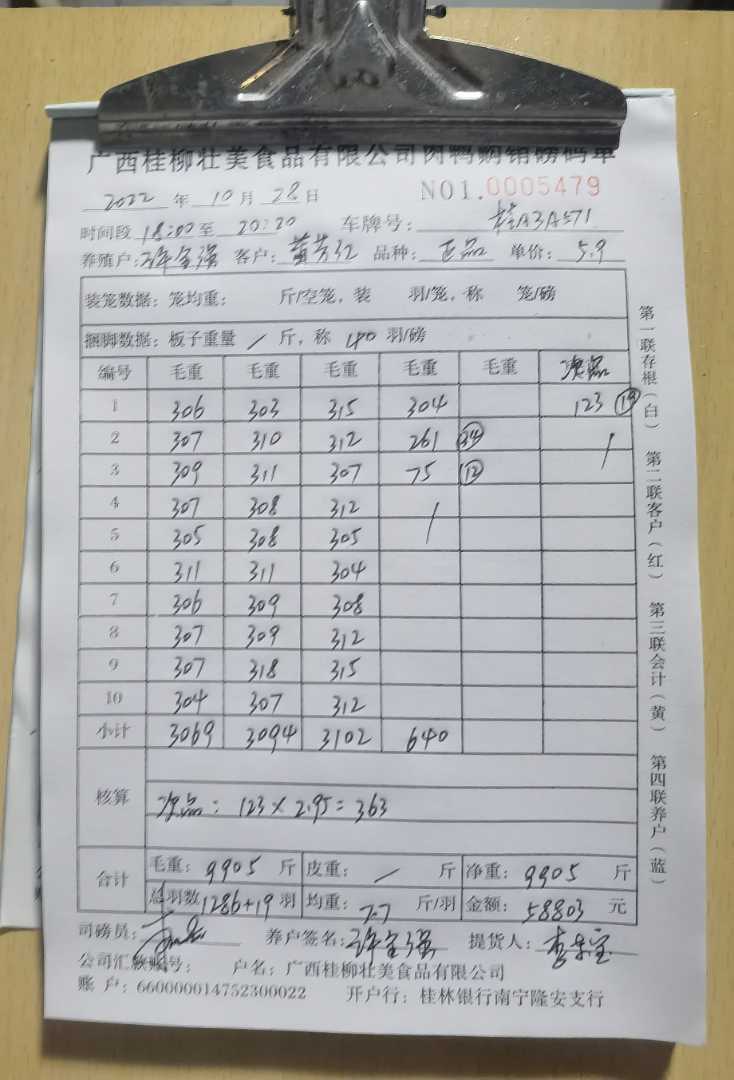 广西桂柳壮美食品有限公司肉鸭购销磅码单
2022 年 10 月 28 日 NO1.0005479
时间段 18:00 至 20:20 车牌号: 桂A3A571
养殖户: 许金强 客户: 黄芳红 品种: 正品 单价: 5.9
装笼数据: 笼均重: 斤/空笼, 装 羽/笼, 称 笼/磅
捆脚数据: 板子重量 / 斤, 称 40 羽/磅
编号 毛重 毛重 毛重 毛重 毛重 次品
1 306 303 315 304 123 (19)
2 307 310 312 261 (34) /
3 309 311 307 75 (12)
4 307 308 312 /
5 305 308 305
6 311 311 304
7 306 309 308
8 307 309 312
9 307 318 315
10 304 307 312
小计 3069 3094 3102 640
核算 次品: 123 × 2.95 = 363
合计 毛重: 9905 斤 皮重: / 斤 净重: 9905 斤
总羽数 1286+19 羽 均重: 7.7 斤/羽 金额: 58803 元
司磅员: 养户签名: 许金强 提货人:
公司汇款账号: 户名: 广西桂柳壮美食品有限公司
账 户: 660000014752300022 开户行: 桂林银行南宁隆安支行
第一联存根(白) 第二联客户(红) 第三联会计(黄) 第四联养户(蓝)